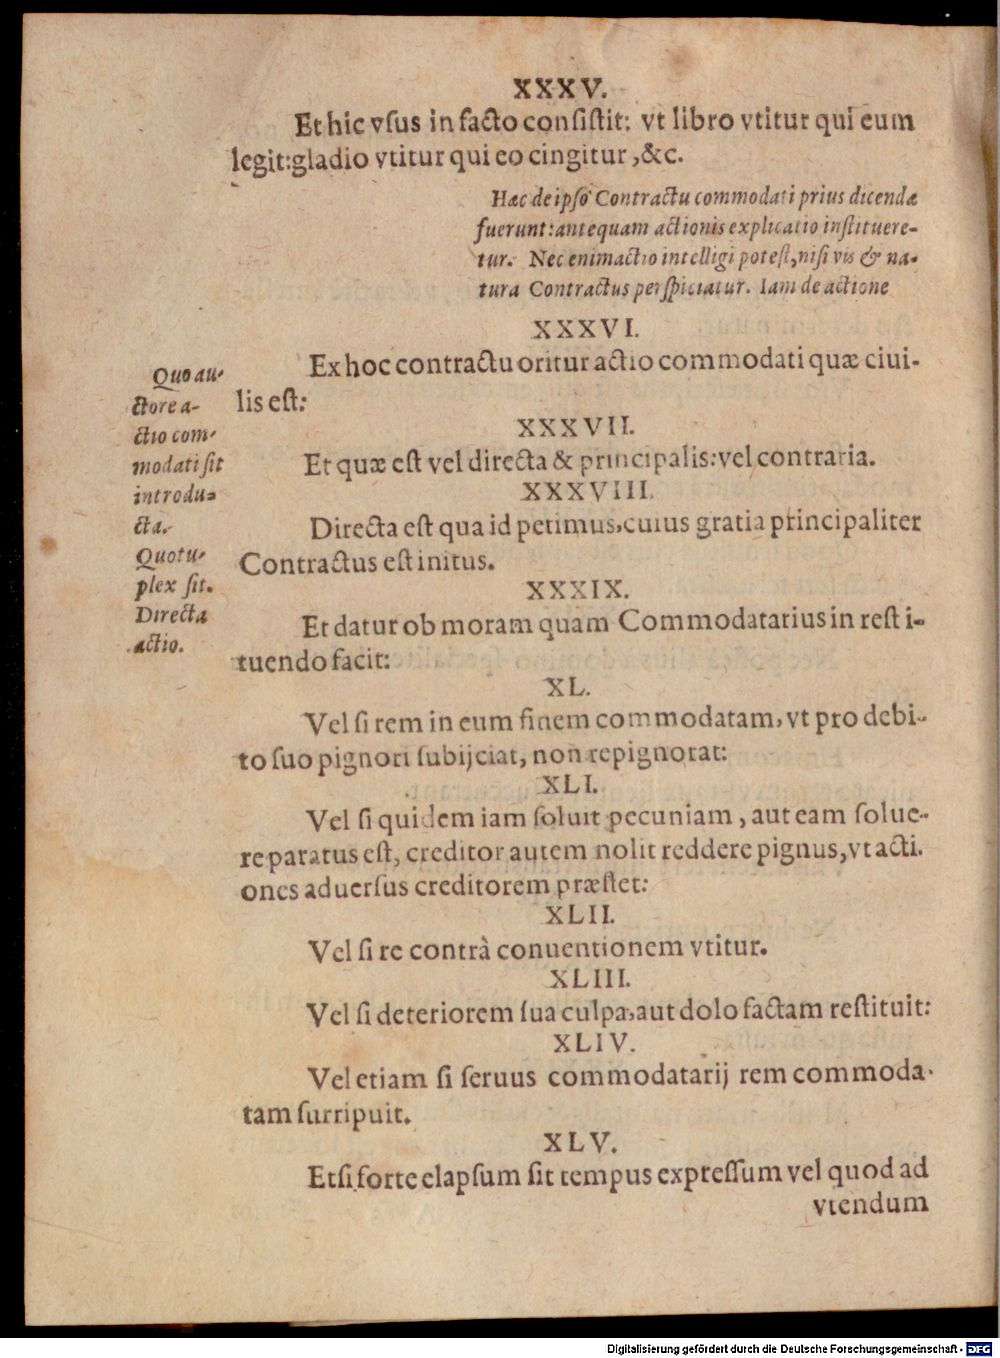 XXXV.
Et hic vſus in facto conſiſtit: vt libro vtitur qui eum
legit: gladio vtitur qui eo cingitur, &c.
Hæc de ipſo Contractu commodati prius dicenda
fuerunt: antequam actionis explicatio inſtituere-
tur. Nec enim actio intelligi poteſt, niſi vis & na-
tura Contractus perſpiciatur. Iam de actione
XXXVI.
Ex hoc contractu oritur actio commodati quæ ciui-
lis eſt:
Quo au-
ctore a-
ctio com-
modati ſit
introdu-
cta.
XXXVII.
Et quæ eſt vel directa & principalis: vel contraria.
Quotu-
plex ſit.
XXXVIII.
Directa eſt qua id petimus, cuius gratia principaliter
Contractus eſt initus.
Directa
actio.
XXXIX.
Et datur ob moram quam Commodatarius in reſti-
tuendo facit:
XL.
Vel ſi rem in eum finem commodatam, vt pro debi-
to ſuo pignori ſubijciat, non repignorat:
XLI.
Vel ſi quidem iam ſoluit pecuniam, aut eam ſolue-
re paratus eſt, creditor autem nolit reddere pignus, vt acti-
ones aduerſus creditorem præſtet:
XLII.
Vel ſi re contrà conuentionem vtitur.
XLIII.
Vel ſi deteriorem ſua culpa, aut dolo factam reſtituit:
XLIV.
Vel etiam ſi ſeruus commodatarij rem commoda-
tam ſurripuit.
XLV.
Etſi forte elapſum ſit tempus expreſſum vel quod ad
vtendum
Digitalisierung gefördert durch die Deutsche Forschungsgemeinschaft - DFG